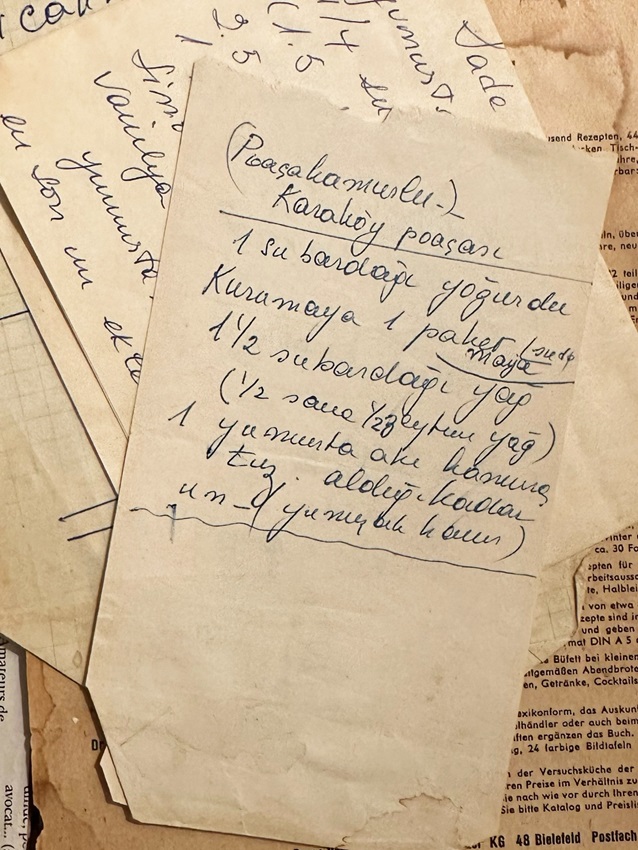 (Poaçahamurlu-)-
Karaköy poaçası
1 su bardağı yoğurdu
Kurumaya 1 paket
maya
1 1/2 subardağı yağ
(1/2 sana 1/2 zeytin yağ)
1 yumurta akı hamura
tuz. aldığı kadar
un - (yumuşak hamur)
Sade
yumurta
1/4 su
(1.5
2.5
1
vanilya
yumurta
en son un ekle
usend Rezepten, 44
cken Tisch-
ln, übe
2 teil
Winter
ca. 30 Fo
epten für
rbeitsaussc
te, Halblei
von etwa
zepte sind in
und geben
mat DIN A 5
Büfett bei kleinen
tgemäßen Abendbrote
en, Getränke, Cocktails
exikonform, das Auskun
elhändler oder auch beim
ften ergänzen das Buch.
g, 24 farbige Bildtafeln
n der Versuchsküche der
ren Preise im Verhältnis zu
ie nach wie vor durch Ihren
Sie bitte Katalog und Preislis
KG 48 Bielefeld Postfach
Amateurs de
avocat... (